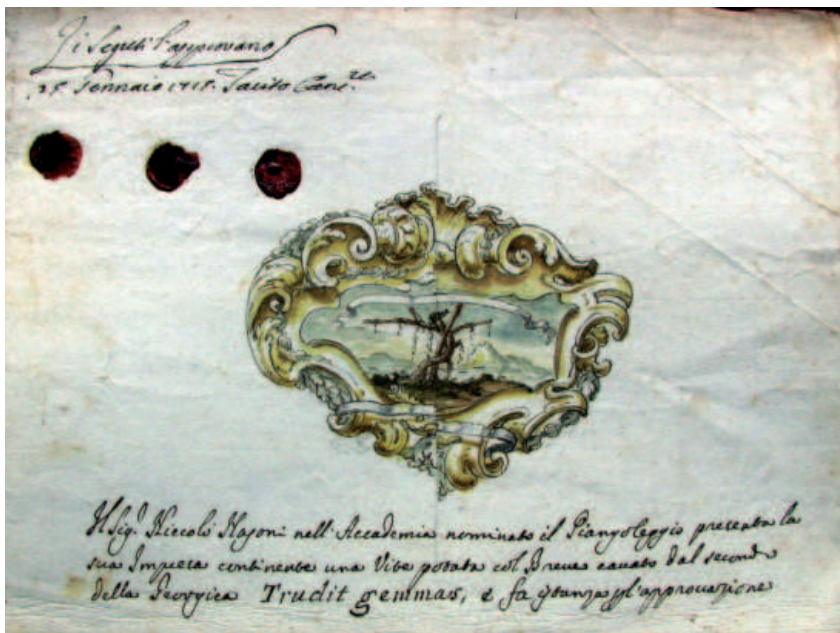 Li Segreti l'approvano
25 Gennaio 1715. Tacito Cons.re
Il Sig.r Niccolò Nasoni nell'Accademia nominato il Piangoleggio presenta la
sua Impresa continente una Vite potata col Breve cavato dal secondo
della Georgica Trudit gemmas, e fa istanza p l'approvazione